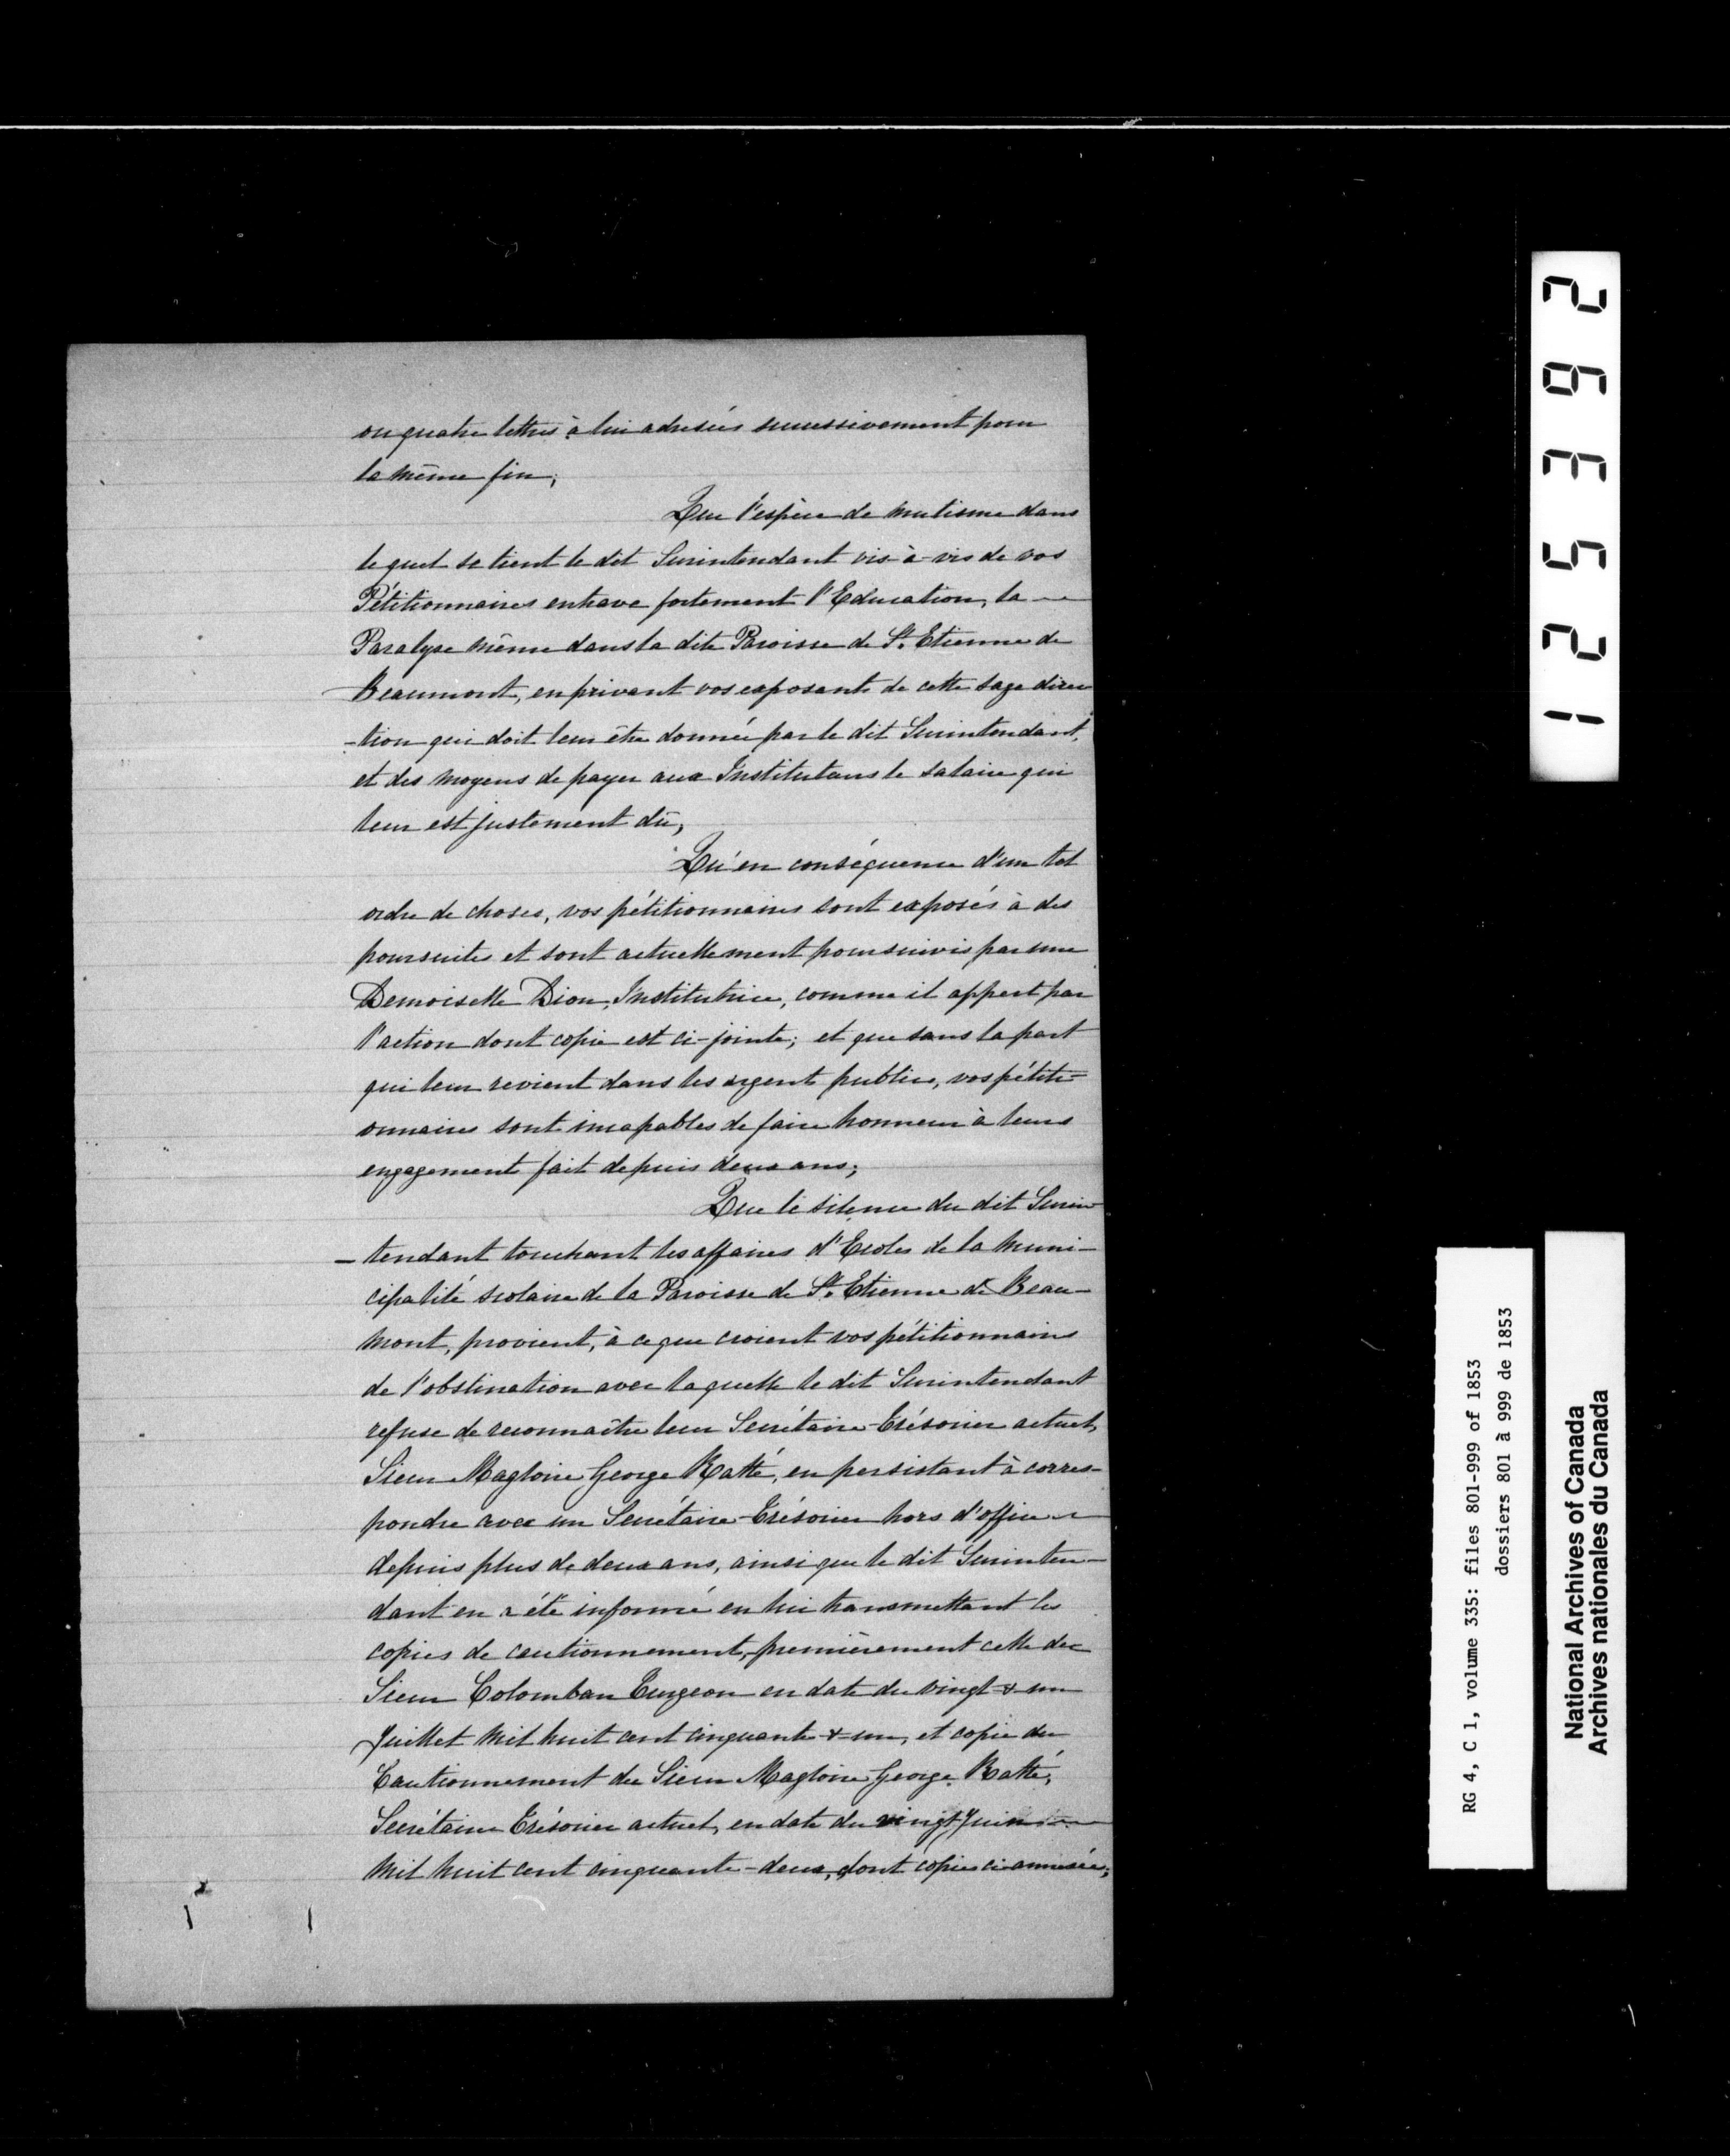 ou quatre lettres à lui adressées successivement pour
la même fin;
Que l'espèce de mutisme dans
le quel se tient le dit Surintendant vis-à-vis de vos
Pétitionnaires entrave fortement l'Education, la
Paralyse même dans la dite Paroisse de St. Etienne de
Beaumont, en privant vos exposants de cette sage direc
-tion qui doit leur être donnée par le dit Surintendant,
et des moyens de payer aux Instituteurs le salaire qui
leur est justement dû;
Qu'en conséquence d'un tel
ordre de choses, vos pétitionnaires sont exposés à des
poursuites et sont actuellement poursuivis par une
Demoiselle Dion, Institutrice, comme il appert par
l'action dont copie est ci-jointe; et que sans la part
qui leur revient dans les argent publics, vos pétiti=
onnaires sont incapables de faire honneur à leurs
engagements fait depuis deux ans;
Que le silence du dit Surin
-tendant touchant les affaires d'Ecoles de la Muni-
cipalité scolaire de la Paroisse de St. Etienne de Beau-
mont, provient, à ce que croient vos pétitionnaires
de l'obstination avec laquelle le dit Surintendant
refuse de reconnaître leur Secrétaire-Trésorier actuel,
Sieur Magloire George Ratté, en persistant à corres-
pondre avec un Secrétaire-Trésorier hors d'office
depuis plus de deux ans, ainsi que le dit Surinten-
dant en a été informé en lui transmettant les
copies de cautionnement, premièrement celle de
Sieur Colomban Turgeon en date du vingt & un
Juillet Mil huit cent cinquante & un, et copie du
Cautionnement du Sieur Magloire George Ratté,
Secrétaire Trésorier actuel, en date du vingt Juin
Mil huit cent cinquante-deux, dont copies ci annexées;
125392
RG 4, C 1, volume 335: files 801-999 of 1853
dossiers 801 à 999 de 1853
National Archives of Canada
Archives nationales du Canada